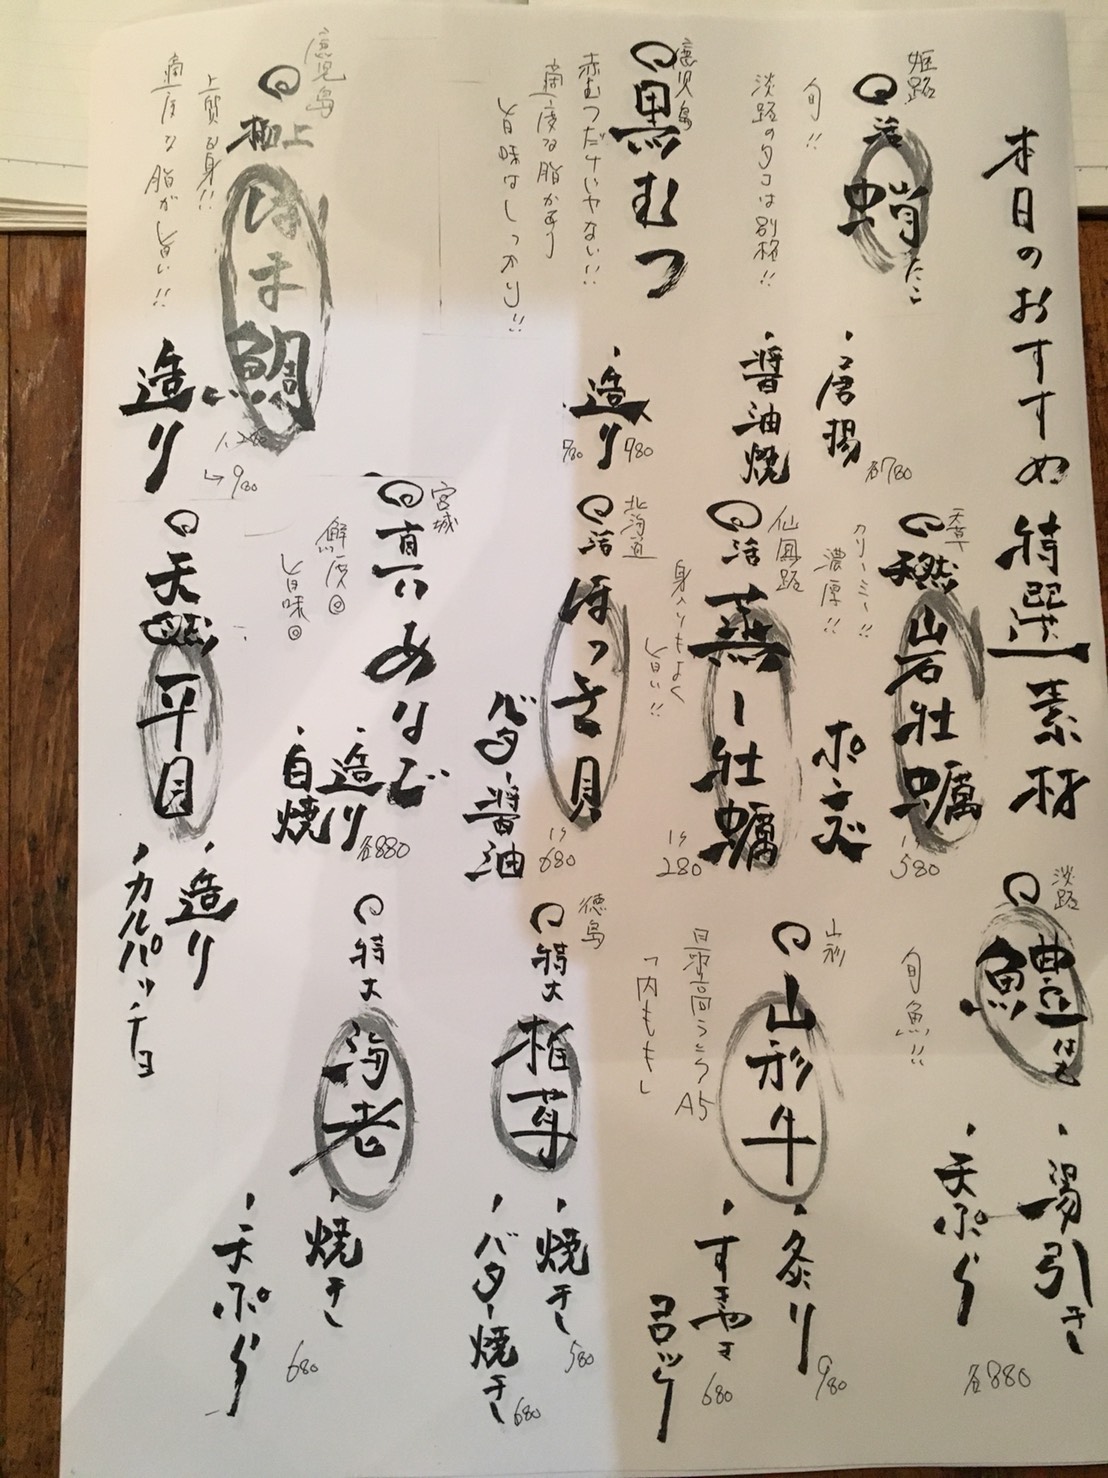 本日のおすすめ特選素材
姫路
活
蛸たこ
旬!!
淡路のタコは別格!!
・唐揚
・醤油焼
各780
鹿児島
黒むつ
赤むつだけじゃない!!
適度な脂があり
旨味はしっかり!!
・造り
980
780
鹿児島
極上
はま鯛
上質な身!!
適度な脂が旨い!!
・造り
1,280
→980
天草
天然
岩牡蠣
クリーミー!!
濃厚!!
ポン文
1ケ
580
仙鳳趾
活
蒸し牡蠣
身入りもよく
旨い!!
1ケ
280
北海道
活
ほっき貝
バター醤油
1ケ
680
宮城
真あなご
鮮度◎
旨味◎
・造り
・白焼
各880
天然
平目
・造り
・カルパッチョ
淡路
鱧はも
旬魚!!
・湯引き
・天ぷら
各880
山形
山形牛
最高ランクA5
「内もも」
・炙り
980
・すきやき
コロッケ
680
徳島
特大
椎茸
・焼き
580
・バター焼き
680
特大
海老
・焼き
・天ぷら
680